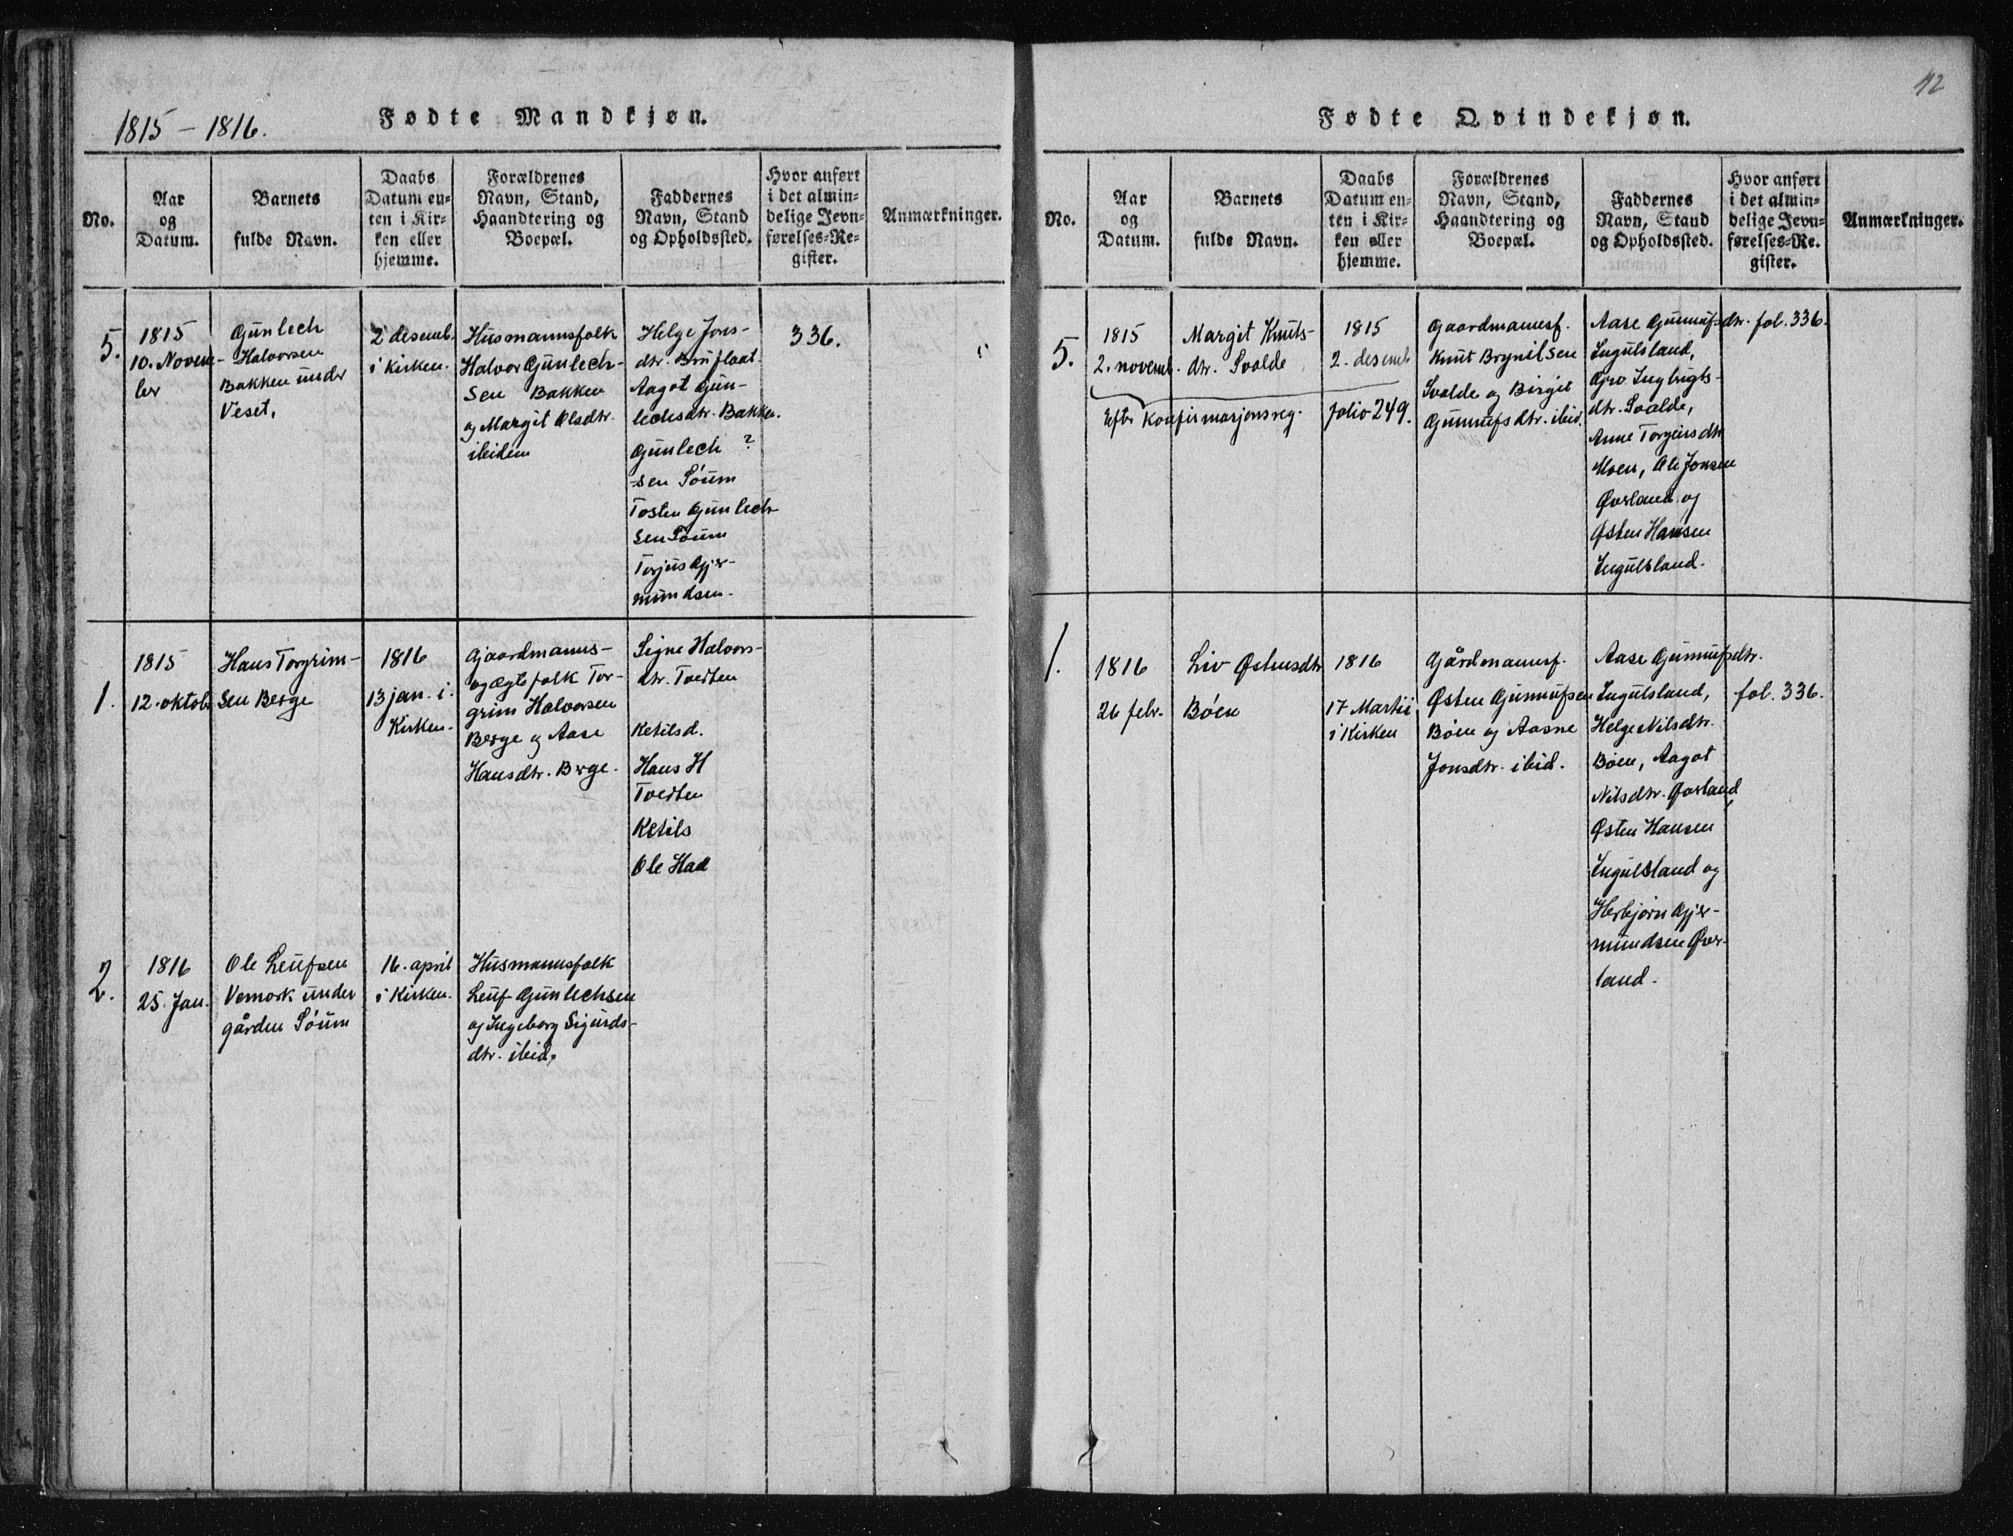 1815 - 1816.
Fødte Mandkjøn.
No.
Aar
og
Datum.
Barnets
fulde Navn.
Daabs
Datum en-
ten i Kir-
ken eller
hjemme.
Forældrenes
Navn, Stand,
Haandtering og
Boepæl.
Faddernes
Navn, Stand
og Opholdssted.
Hvor anført
i det almin-
delige Jevn-
førelses-Re-
gister.
Anmærkninger.
5.
1815
10. Novem-
ber
Gunlech
Halvorsen
Bakken under
Veset.
2 desemb.
i Kirken.
Husmannsfolk
Halvor Gunlech-
sen Bakken
og Margit Olsdtr.
ibidem
Helge Jons-
dtr. Bruflaat.
Aagot Gun-
lechsdtr. Bakken.
Gunlech ?
-sen Søum
Tosten Gunlech-
sen Søum
Torjus Gjer-
mundsen.
336.
1.
1815
12. oktob.
Hans Torgrim-
sen Berge
1816
13 jan. i
Kirken.
Gjaardmanns-
og Ægtefolk Tor-
grim Halvorsen
Berge og Aase
Hansdtr. Berge.
Signe Halvors-
dtr. Tvedten
Ketilsd.
Hans H
Tvedten
Ketils
Ole Had
2.
1816
25. Jan.
Ole Leufsen
Vemork under
gården Søum
16. april
i Kirken.
Husmannsfolk
Leuf Gunlechsen
og Ingeborg Sigurds-
dtr. ibid.
42
Fødte Qvindekjøn.
No.
Aar
og
Datum.
Barnets
fulde Navn.
Daabs
Datum en-
ten i Kir-
ken eller
hjemme.
Forældrenes
Navn, Stand,
Haandtering og
Boepæl.
Faddernes
Navn, Stand
og Opholdssted.
Hvor anført
i det almin-
delige Jevn-
førelses-Re-
gister.
Anmærkninger.
5.
1815
2. novemb.
Margit Knuts-
dtr. Svalde
1815
2. desemb
Efter Konfirmasjonsreg. folio 249.
Gaardmannsf.
Knut Brynilsen
Svalde og Birgit
Gunnufsdtr. ibid.
Aase Gunnufsdtr.
Ingulsland,
Gro Ingbrigts-
dtr. Svalde,
Anne Torgeirsdtr
Moen, Ole Jonsen
Øvrland og
Østen Hansen
Ingulsland.
fol. 336.
1.
1816
26 febr.
Liv Østensdtr
Bøen
1816
17 Martii
i Kirken
Gårdmannsf.
Østen Gunnufsen
Bøen og Aasne
Jonsdtr. ibid.
Aase Gunnufsdtr.
Ingulsland,
Helge Nilsdtr.
Bøen, Aagot
Nilsdtr. Øvrland,
Østen Hansen
Ingulsland og
Herbjørn Gjer-
mundsen Øvr-
land.
fol. 336.